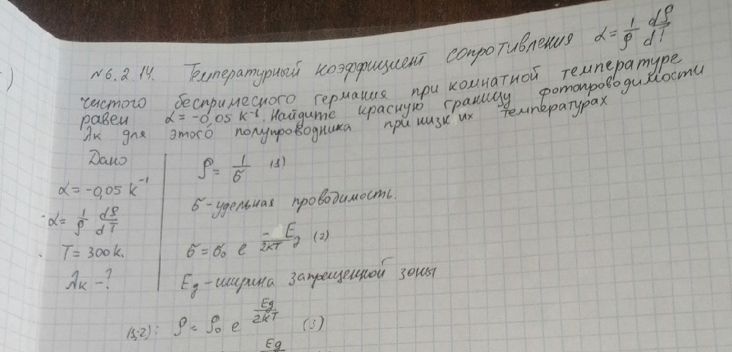 №6.2.14. Температурный коэффициент сопротивления α = 1/ρ dρ/dT
чистого беспримесного германия при комнатной температуре
равен α = -0,05 k⁻¹. Найдите красную границу фотопроводимости
λк для этого полупроводника при низких температурах
Дано
α = -0,05 k⁻¹
α = 1/ρ dρ/dT
T = 300k.
λк - ?
ρ = 1/σ (1)
σ - удельная проводимость.
σ = σ₀ e^(-Eg/2kT) (2)
Eg - ширина запрещенной зоны
(1,2): ρ = ρ₀ e^(Eg/2kT) (3)
Eg